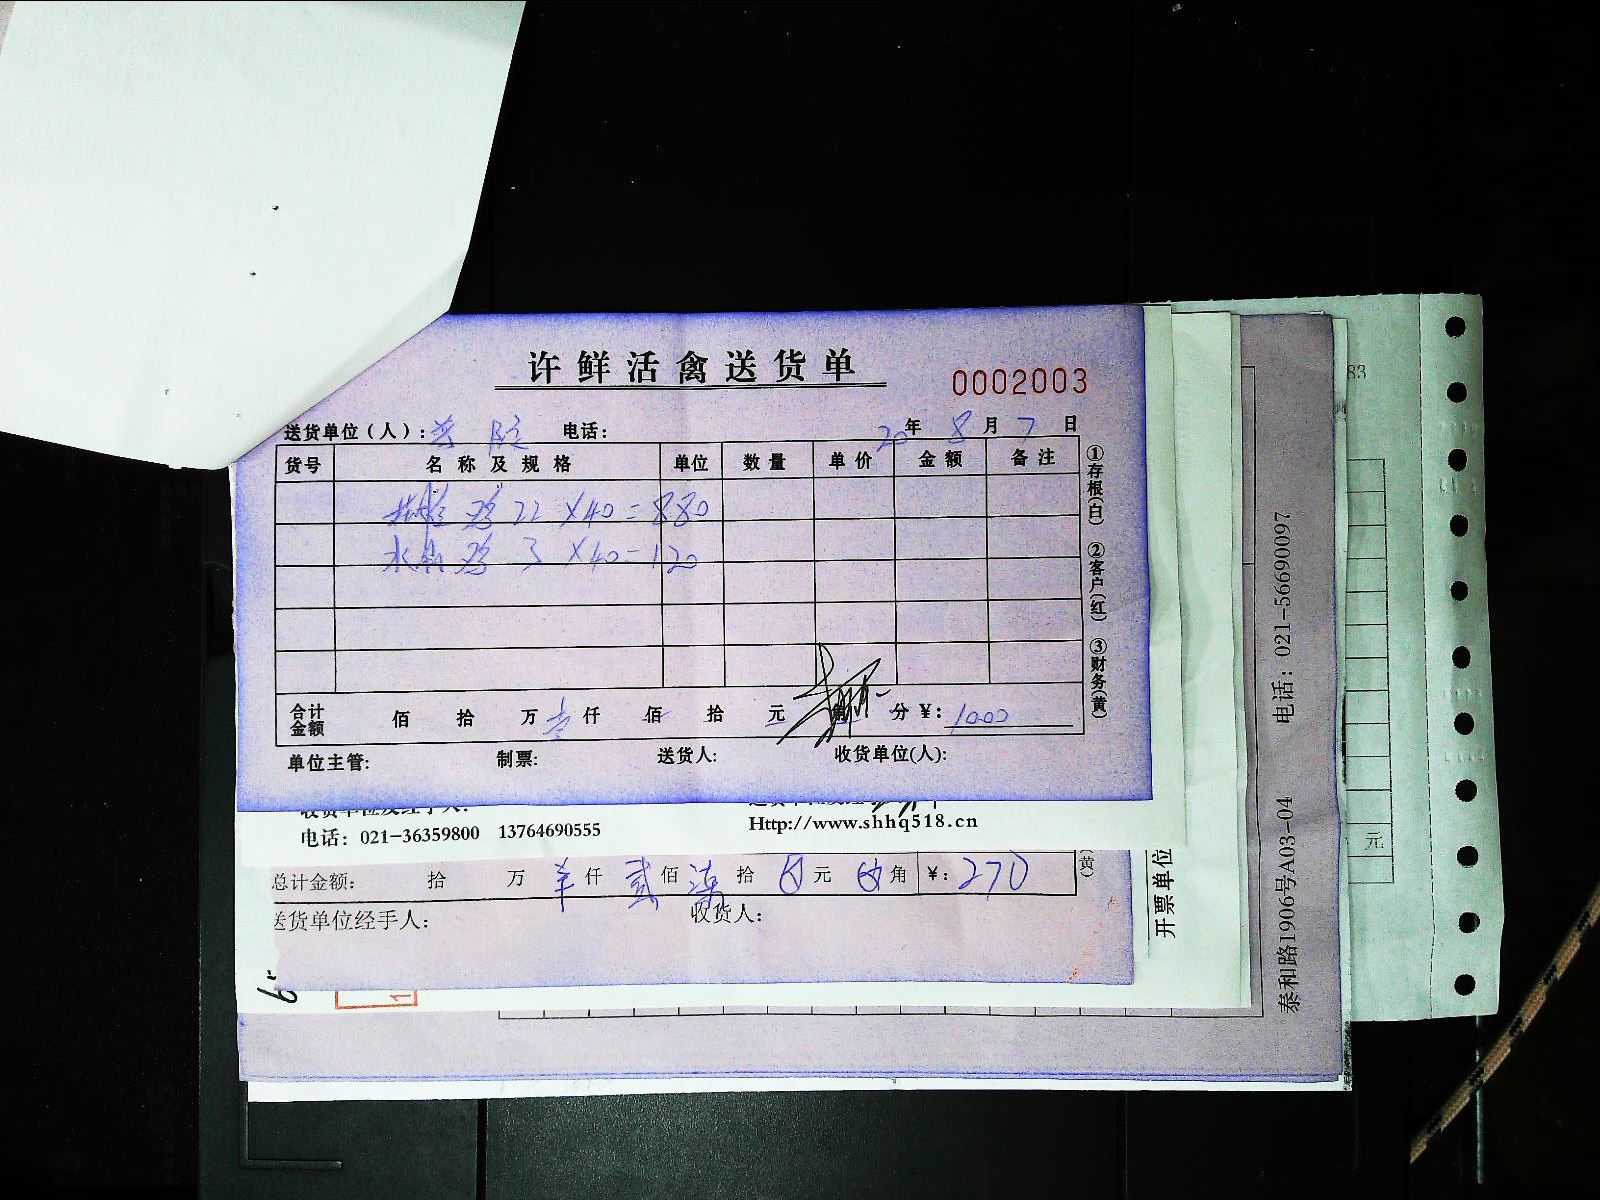 许鲜活禽送货单
0002003
送货单位（人）： 电话： 20年 8月 7日
货号 名称及规格 单位 数量 单价 金额 备注
鸡 22 X40=880
水 鸡 3 X40=120
合计金额 佰 拾 万 壹仟 佰 拾 元 角 分 ¥: 1000
单位主管: 制票: 送货人: 收货单位(人):
①存根(白) ②客户(红) ③财务(黄)
电话：021-36359800 13764690555
Http://www.shhq518.cn
总计金额： 拾 万 仟 贰佰 拾 元 角 ¥: 270
(黄)
送货单位经手人： 收货人：
开票单位
泰和路1906号A03-04 电话：021-56690097
83
元